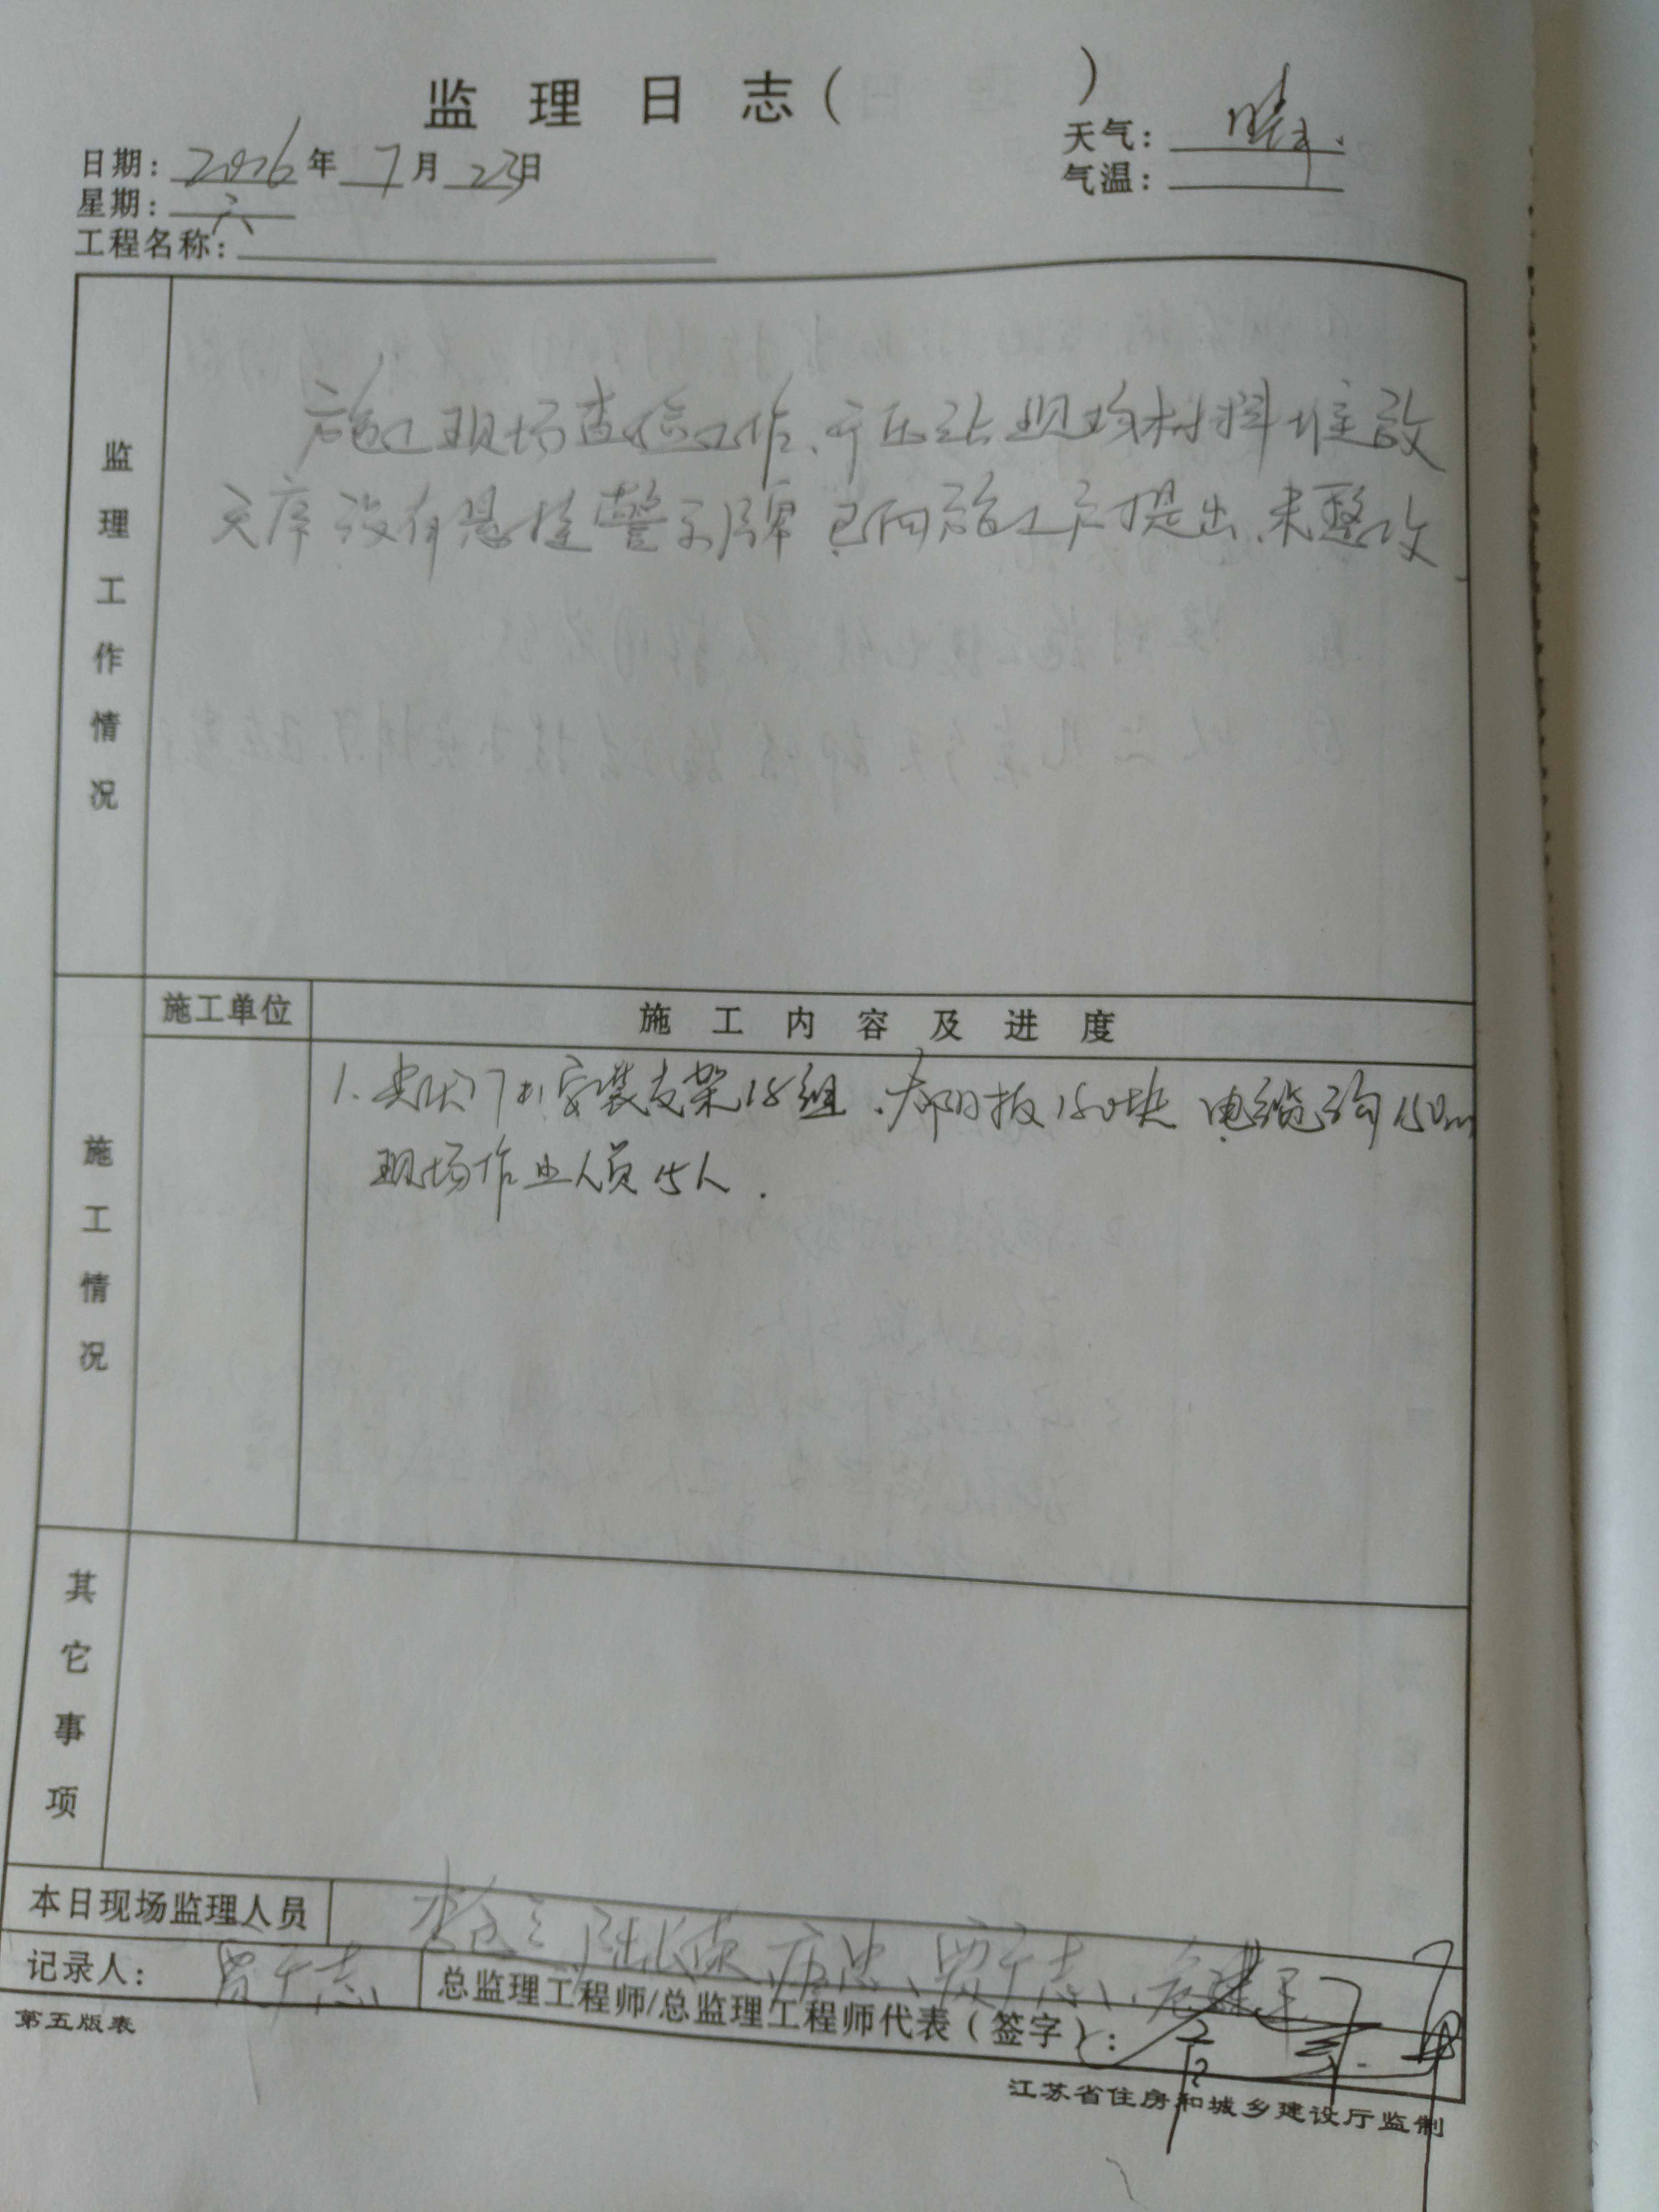 监理日志（ ）
日期：2016年7月23日
天气：晴.
星期：六
气温：
工程名称：
监理工作情况
施工现场查验工作、升压站现场材料堆放
无序 没有悬挂警示牌 已向施工方提出、未整改.
施工单位
施工内容及进度
施工情况
1. 安装支架18组、太阳板150块 电缆沟150m
现场作业人员15人.
其它事项
本日现场监理人员
贾于志
记录人：贾于志
总监理工程师/总监理工程师代表（签字）：
第五版表
江苏省住房和城乡建设厅监制